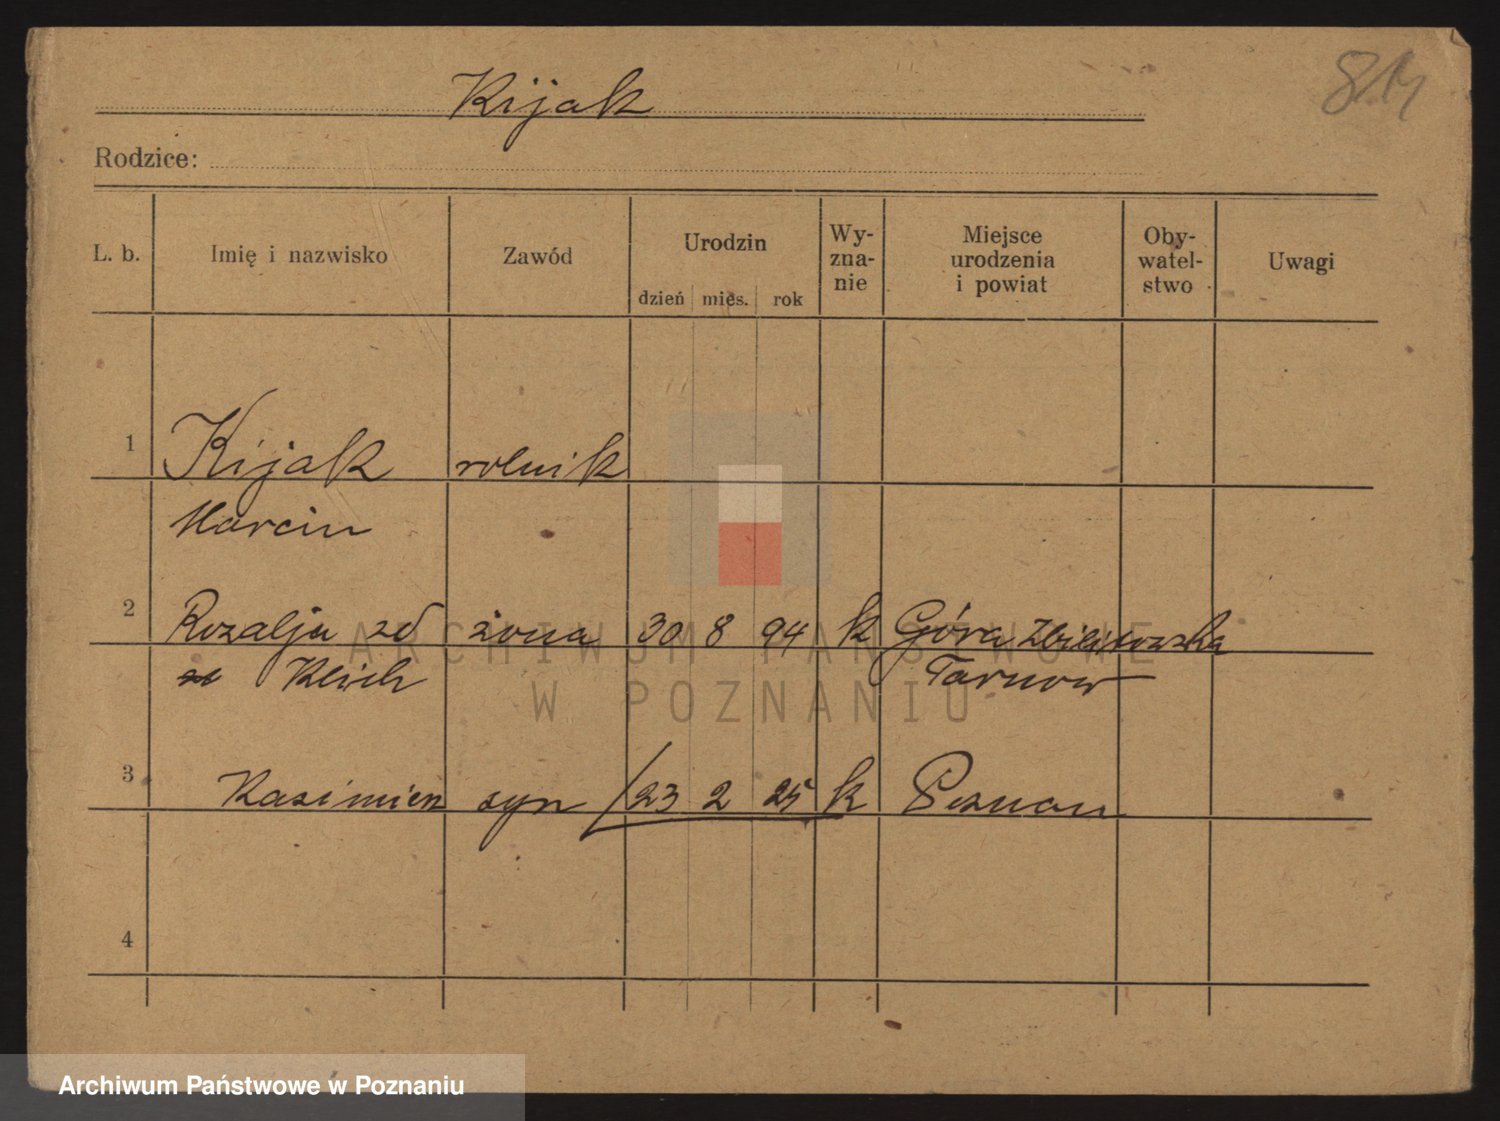 Kijak
Rodzice:
L. b. Imię i nazwisko Zawód Urodzin dzień mies. rok Wy-zna-nie Miejsce urodzenia i powiat Oby-watel-stwo Uwagi
1 Kijak rolnik
Marcin
2 Rozalja zd żona 30 8 94 k Góra Zbilitowska
Klich Tarnow
3 Kasimierz syn 23 2 25 k Poznan
4
ARCHIWUM PAŃSTWOWE
W POZNANIU
Archiwum Państwowe w Poznaniu